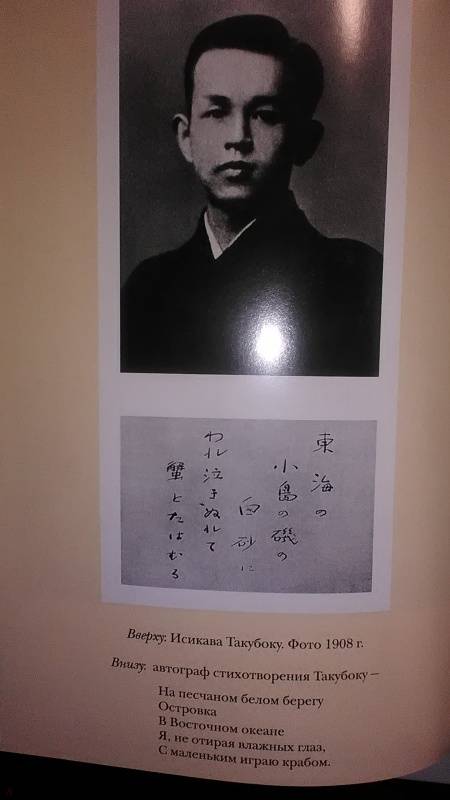 東海の
小島の磯の
白砂に
われ泣きぬれて
蟹とたはむる
Вверху: Исикава Такубоку. Фото 1908 г.
Внизу: автограф стихотворения Такубоку —
На песчаном белом берегу
Островка
В Восточном океане
Я, не отирая влажных глаз,
С маленьким играю крабом.